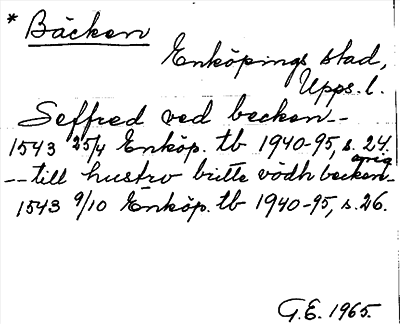 * Bäcken
Enköpings stad,
Upps. l.
Seffred ved becken--
1543 25/4 Enköp. tb 1940-95, s. 24.
orig
-- till hustrv britte vödh becken--
1543 9/10 Enköp. tb 1940-95, s. 26.
G.E. 1965.